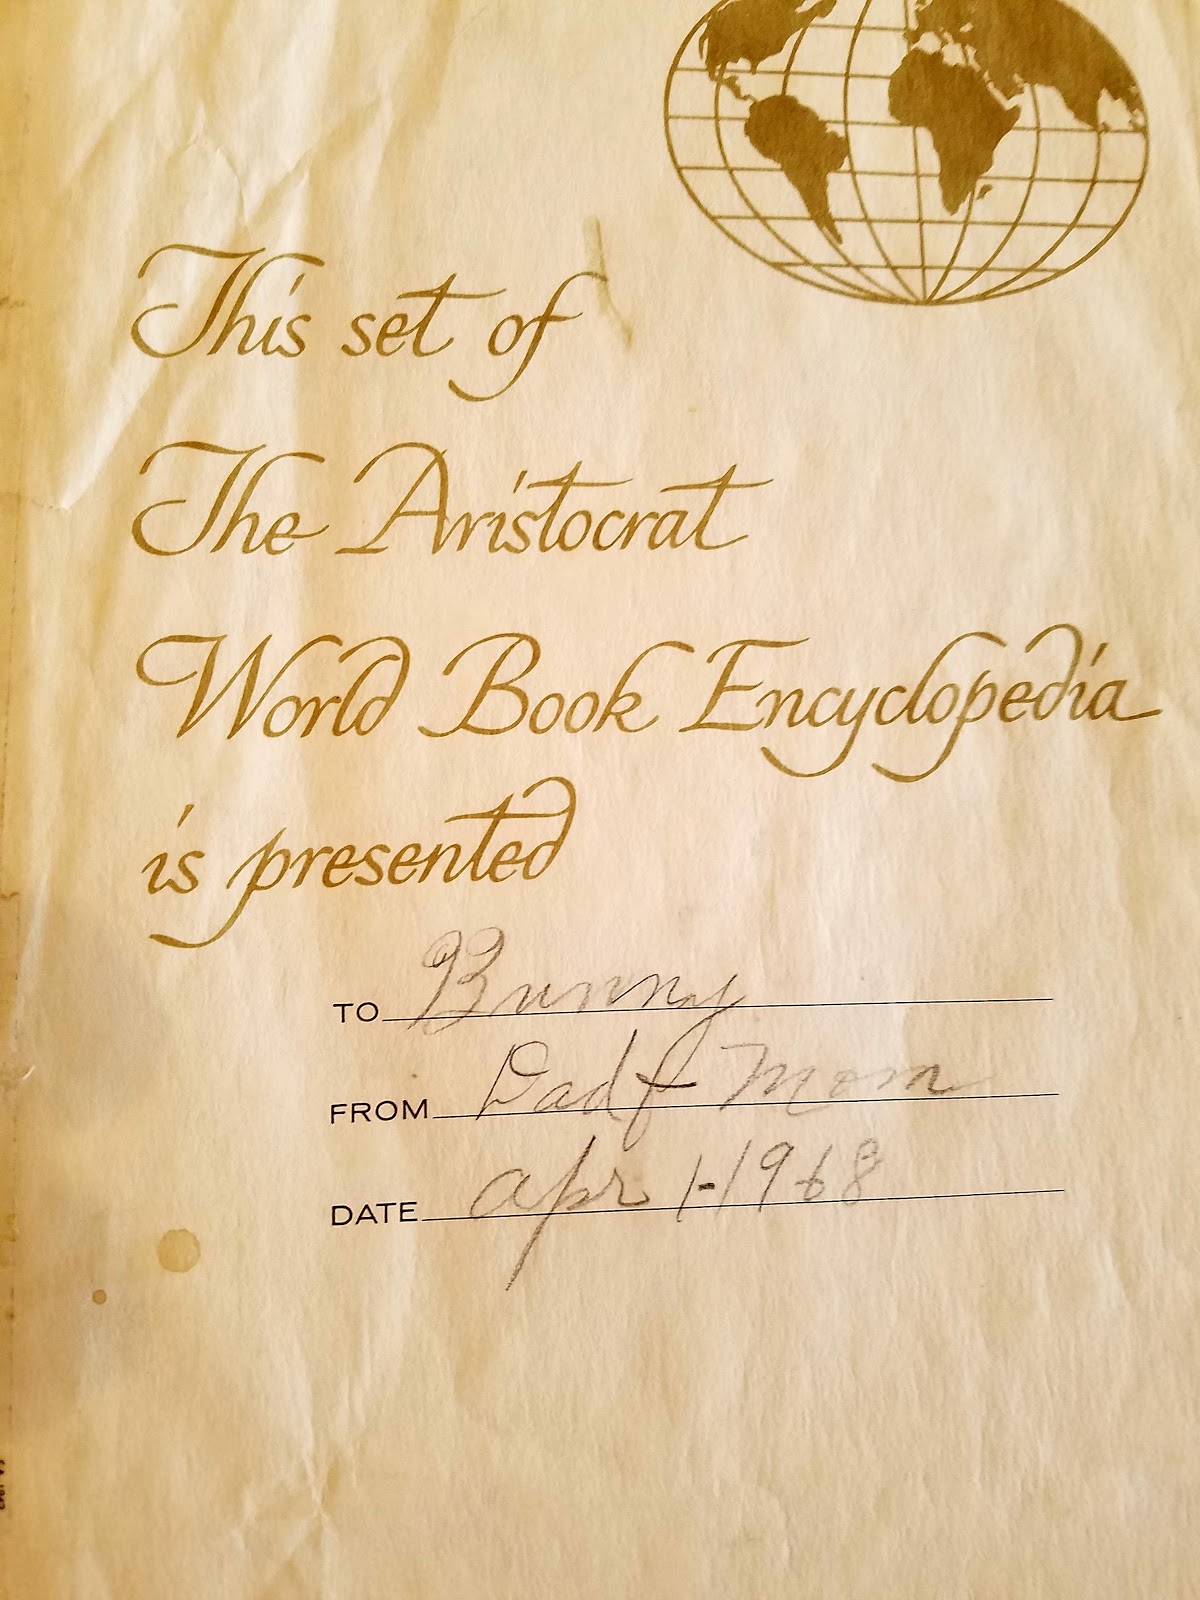 This set of
The Aristocrat
World Book Encyclopedia
is presented
TO Bunny
FROM Dad & Mom
DATE Apr 1-1968